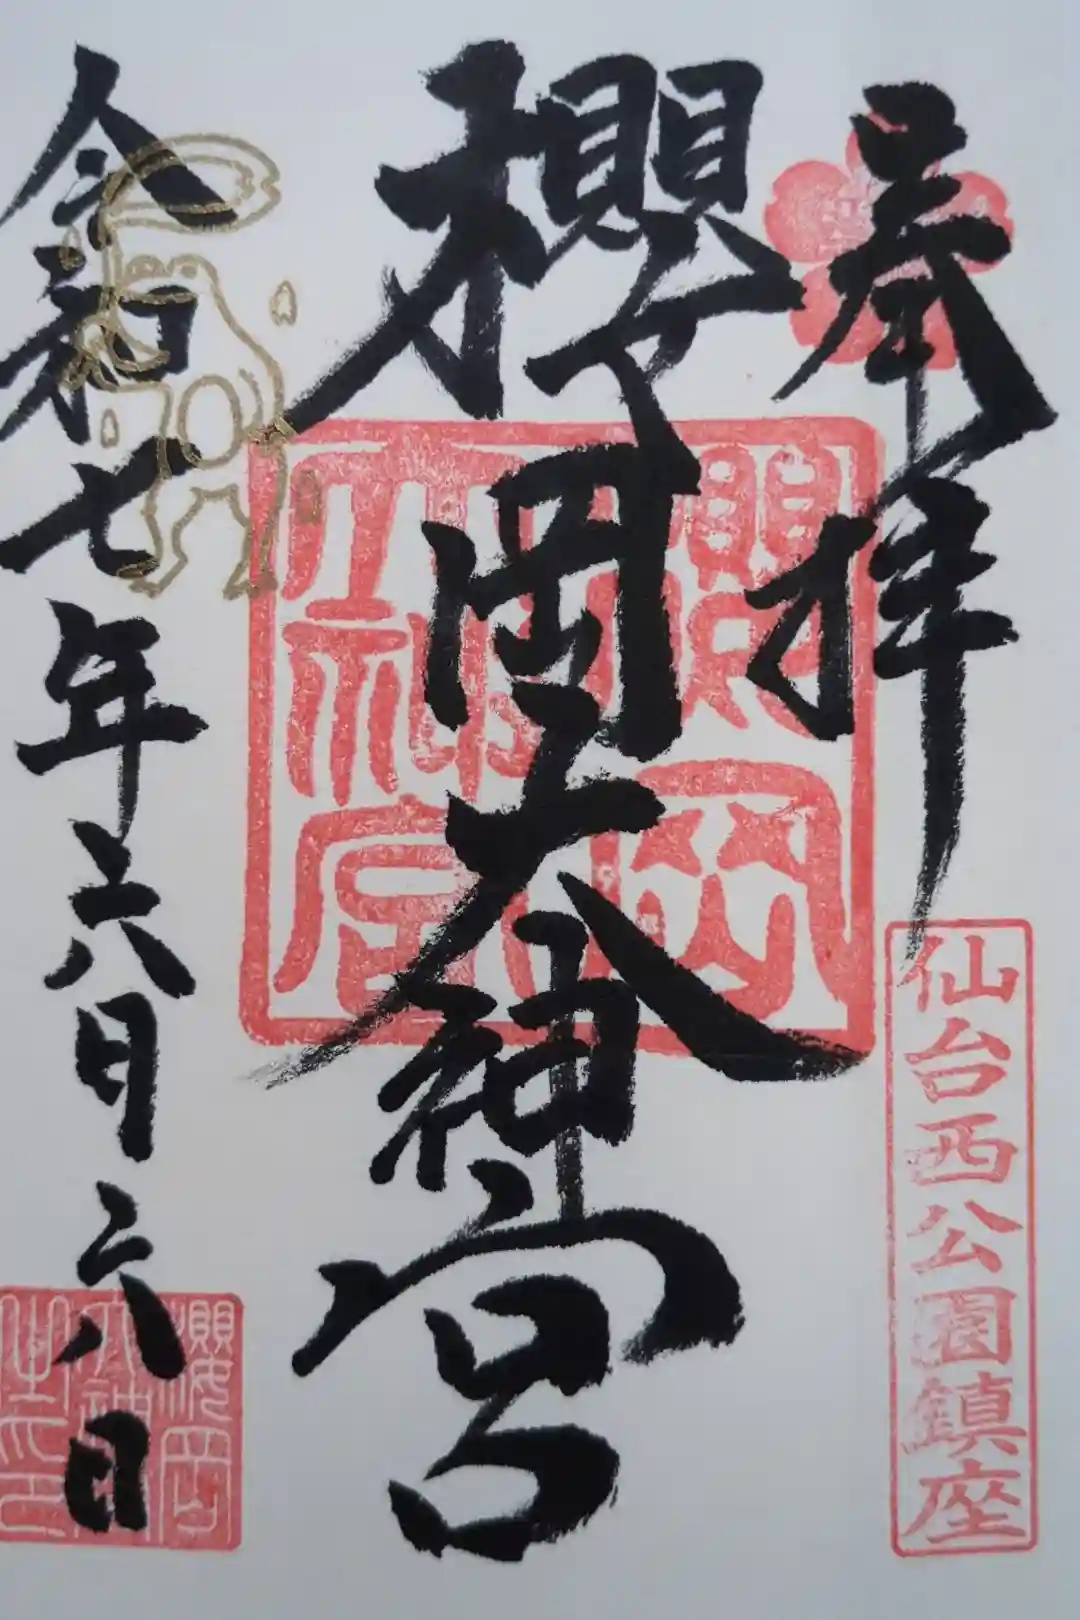 奉拝
仙台西公園鎮座
櫻岡大神宮
櫻岡
大神宮
令和七年六月六日
櫻岡
大神宮
之印